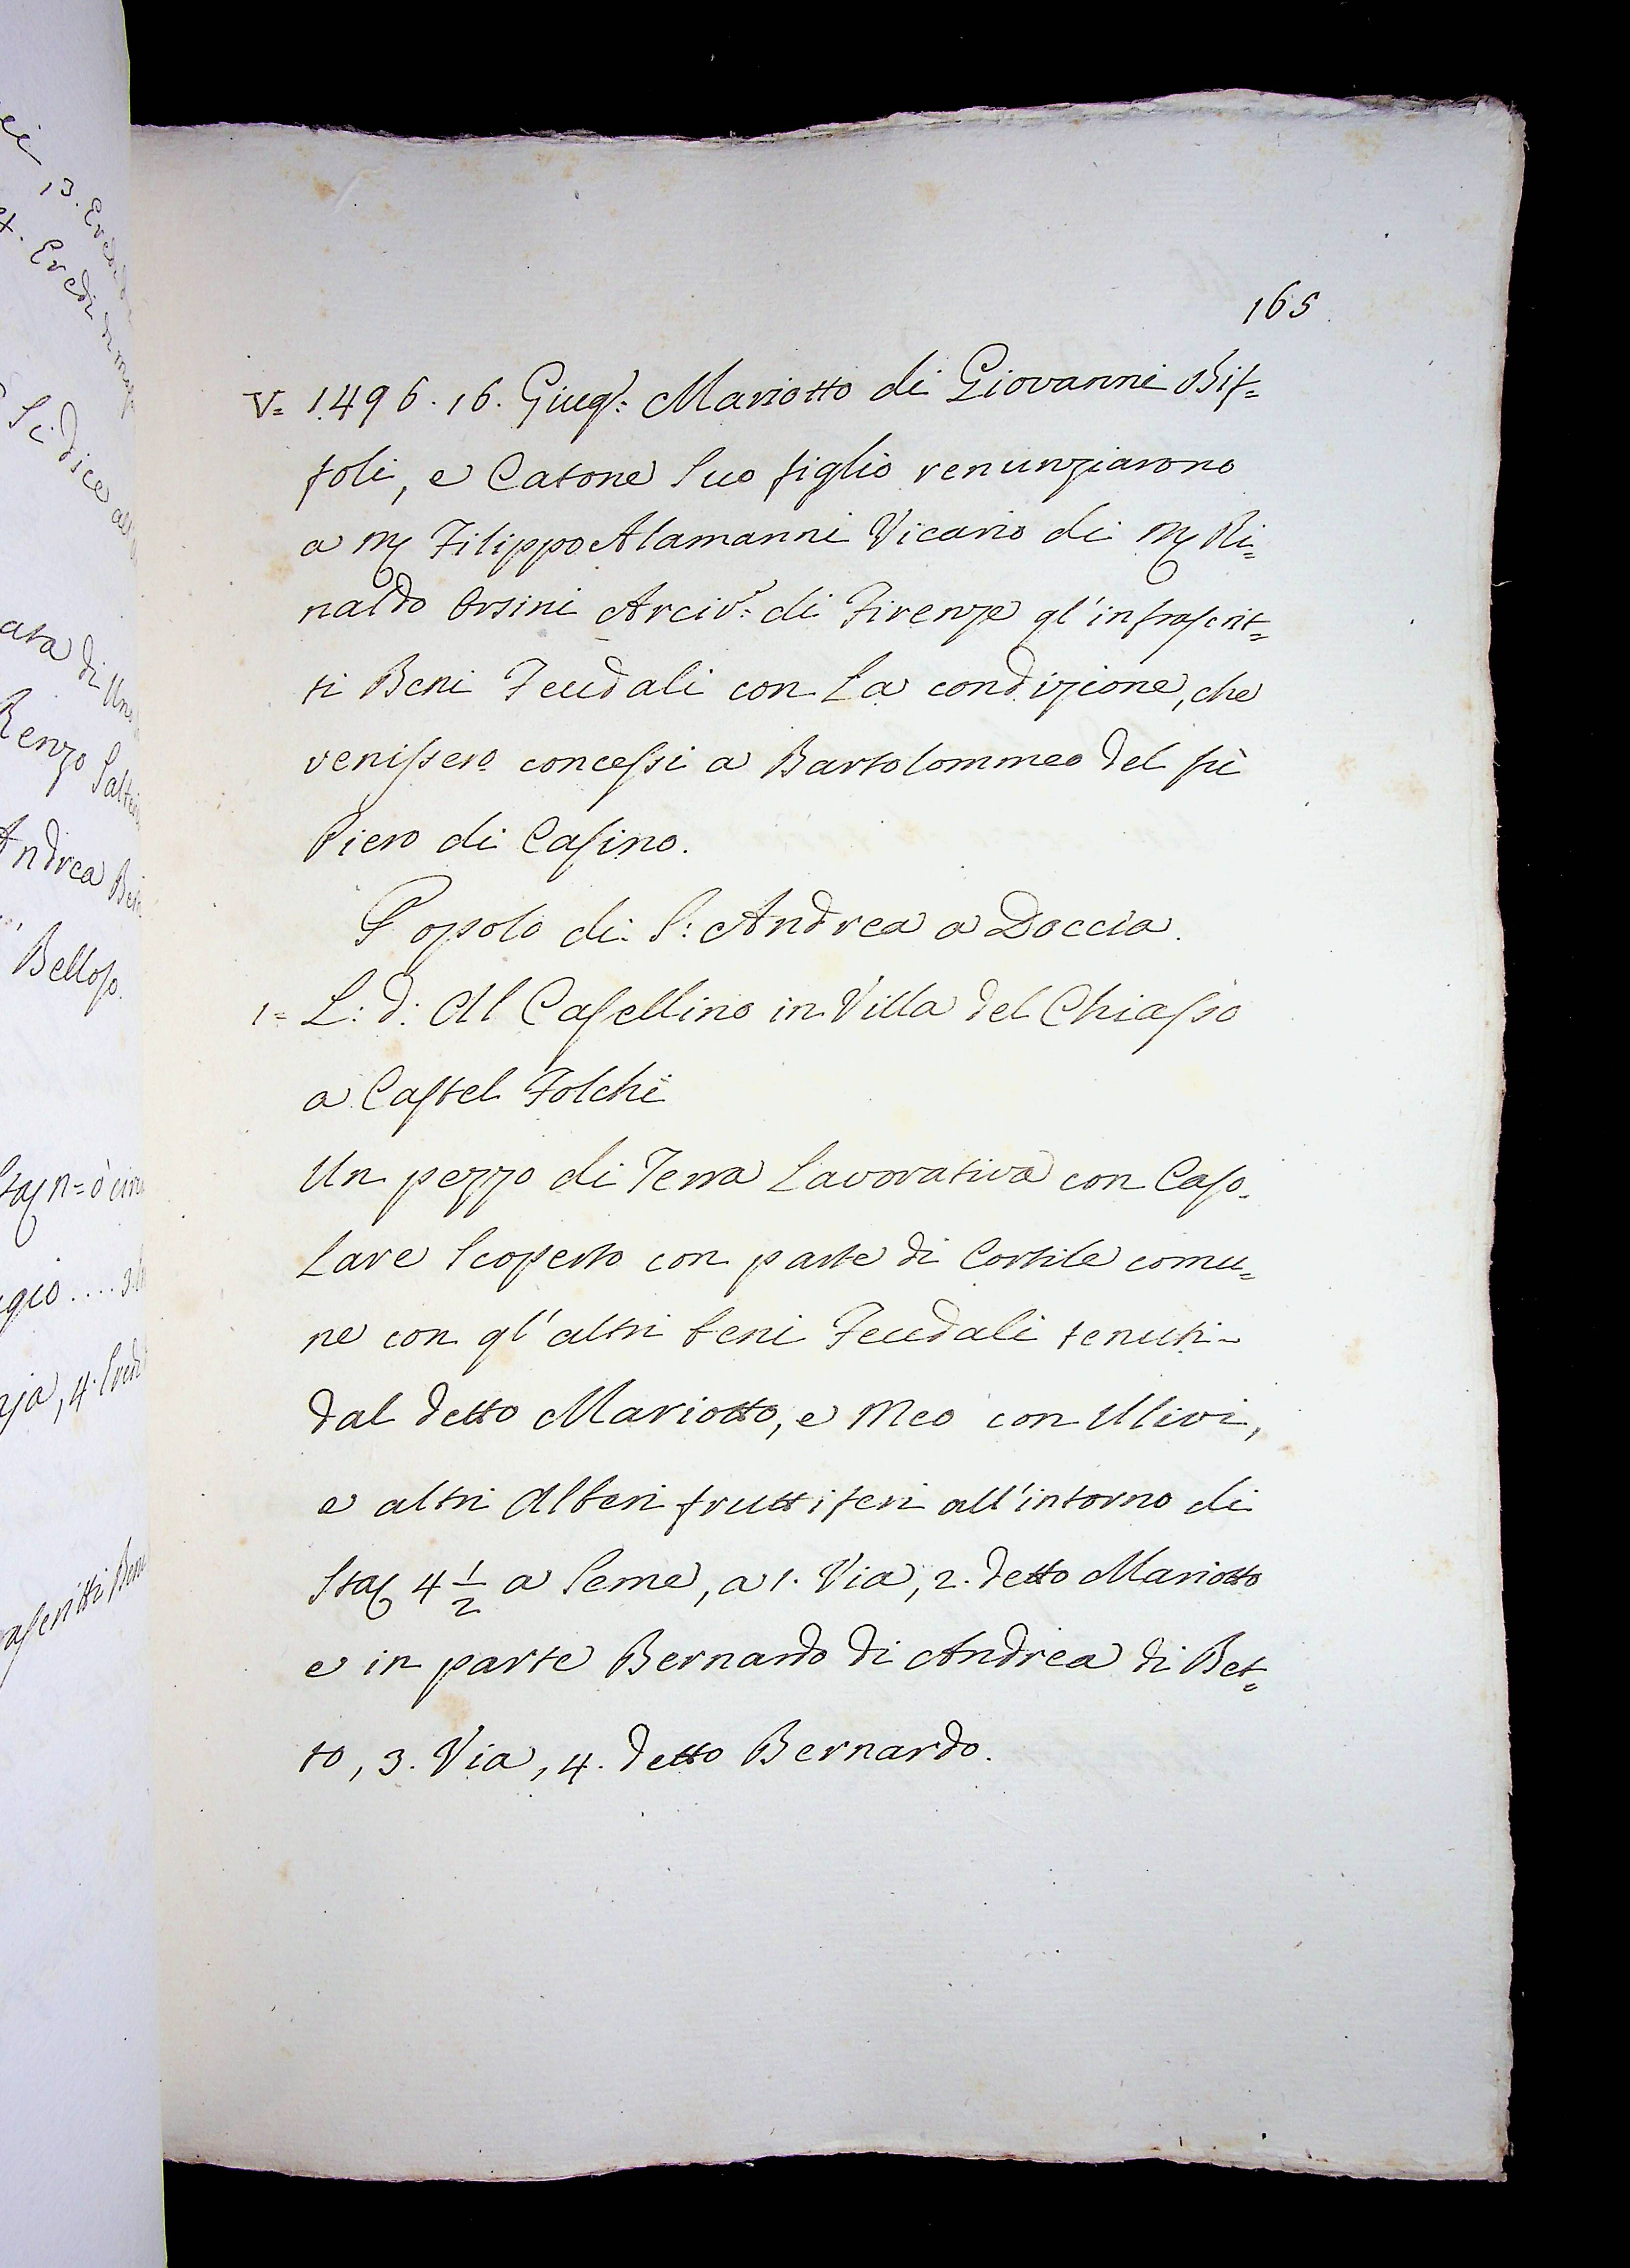 165
V= 1496. 16. Giug.º: Mariotto di Giovanni Bif=
foli, e Catone Suo figlio renunziarono
a M Filippo Alamanni Vicario di M Ri=
naldo Orsini Arciv.º: di Firenze gl'infrascrit=
ti Beni Feudali con La condizione, che
venissero concessi a Bartolommeo del fù
Piero di Casino.
Popolo di S: Andrea a Doccia.
1= L: d: Al Casellino in Villa del Chiasso
a Castel Folchi
Un pezzo di Terra Lavorativa con Caso=
Lare Scoperto con parte di Cortile comu=
ne con gl'altri beni Feudali tenuti-
dal detto Mariotto, e Meo con Ulivi,
e altri Alberi fruttiferi all'intorno di
Sta 4 1/2 a Seme, a 1. Via, 2. detto Mariotto
e in parte Bernardo di Andrea di Bet=
to, 3. Via, 4. detto Bernardo.
13.
Si dice
Renzo
Andrea
Belloso.